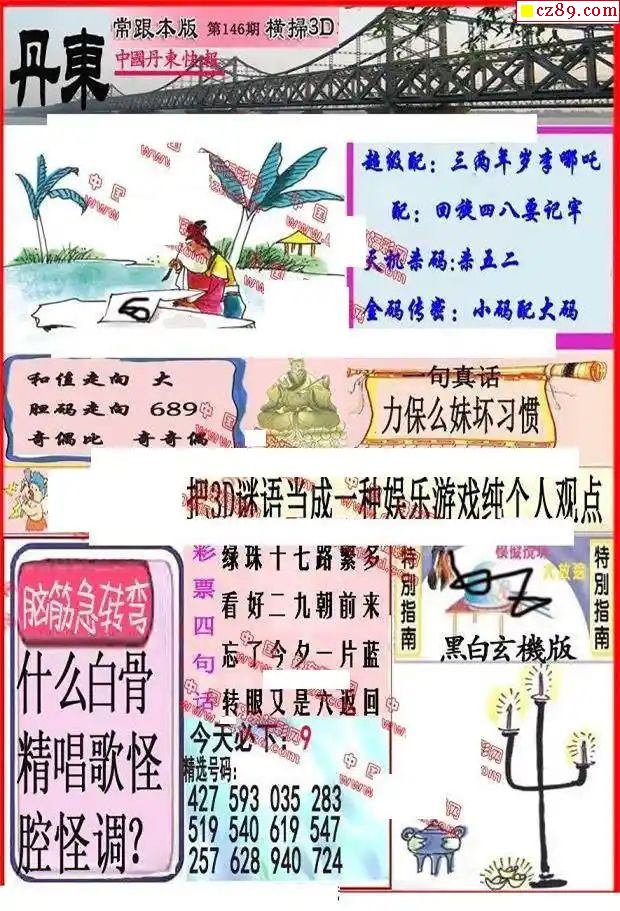 cz89.com
常跟本版 第146期 橫掃3D
丹東
中國丹東快報
超级配：三两年岁李哪吒
配：回旋四八要记牢
天机杀码:杀五二
金码传密：小码配大码
6
和值走向 大
胆码走向 689
奇偶比 奇奇偶
一句真话
力保么妹坏习惯
把3D谜语当成一种娱乐游戏纯个人观点
脑筋急转弯
什么白骨
精唱歌怪
腔怪调?
彩票四句话
绿珠十七路繁多
看好二九朝前来
忘了今夕一片蓝
转眼又是六返回
今天必下：9
精选号码：
427 593 035 283
519 540 619 547
257 628 940 724
特别指南
大放送
特別指南
黑白玄機版